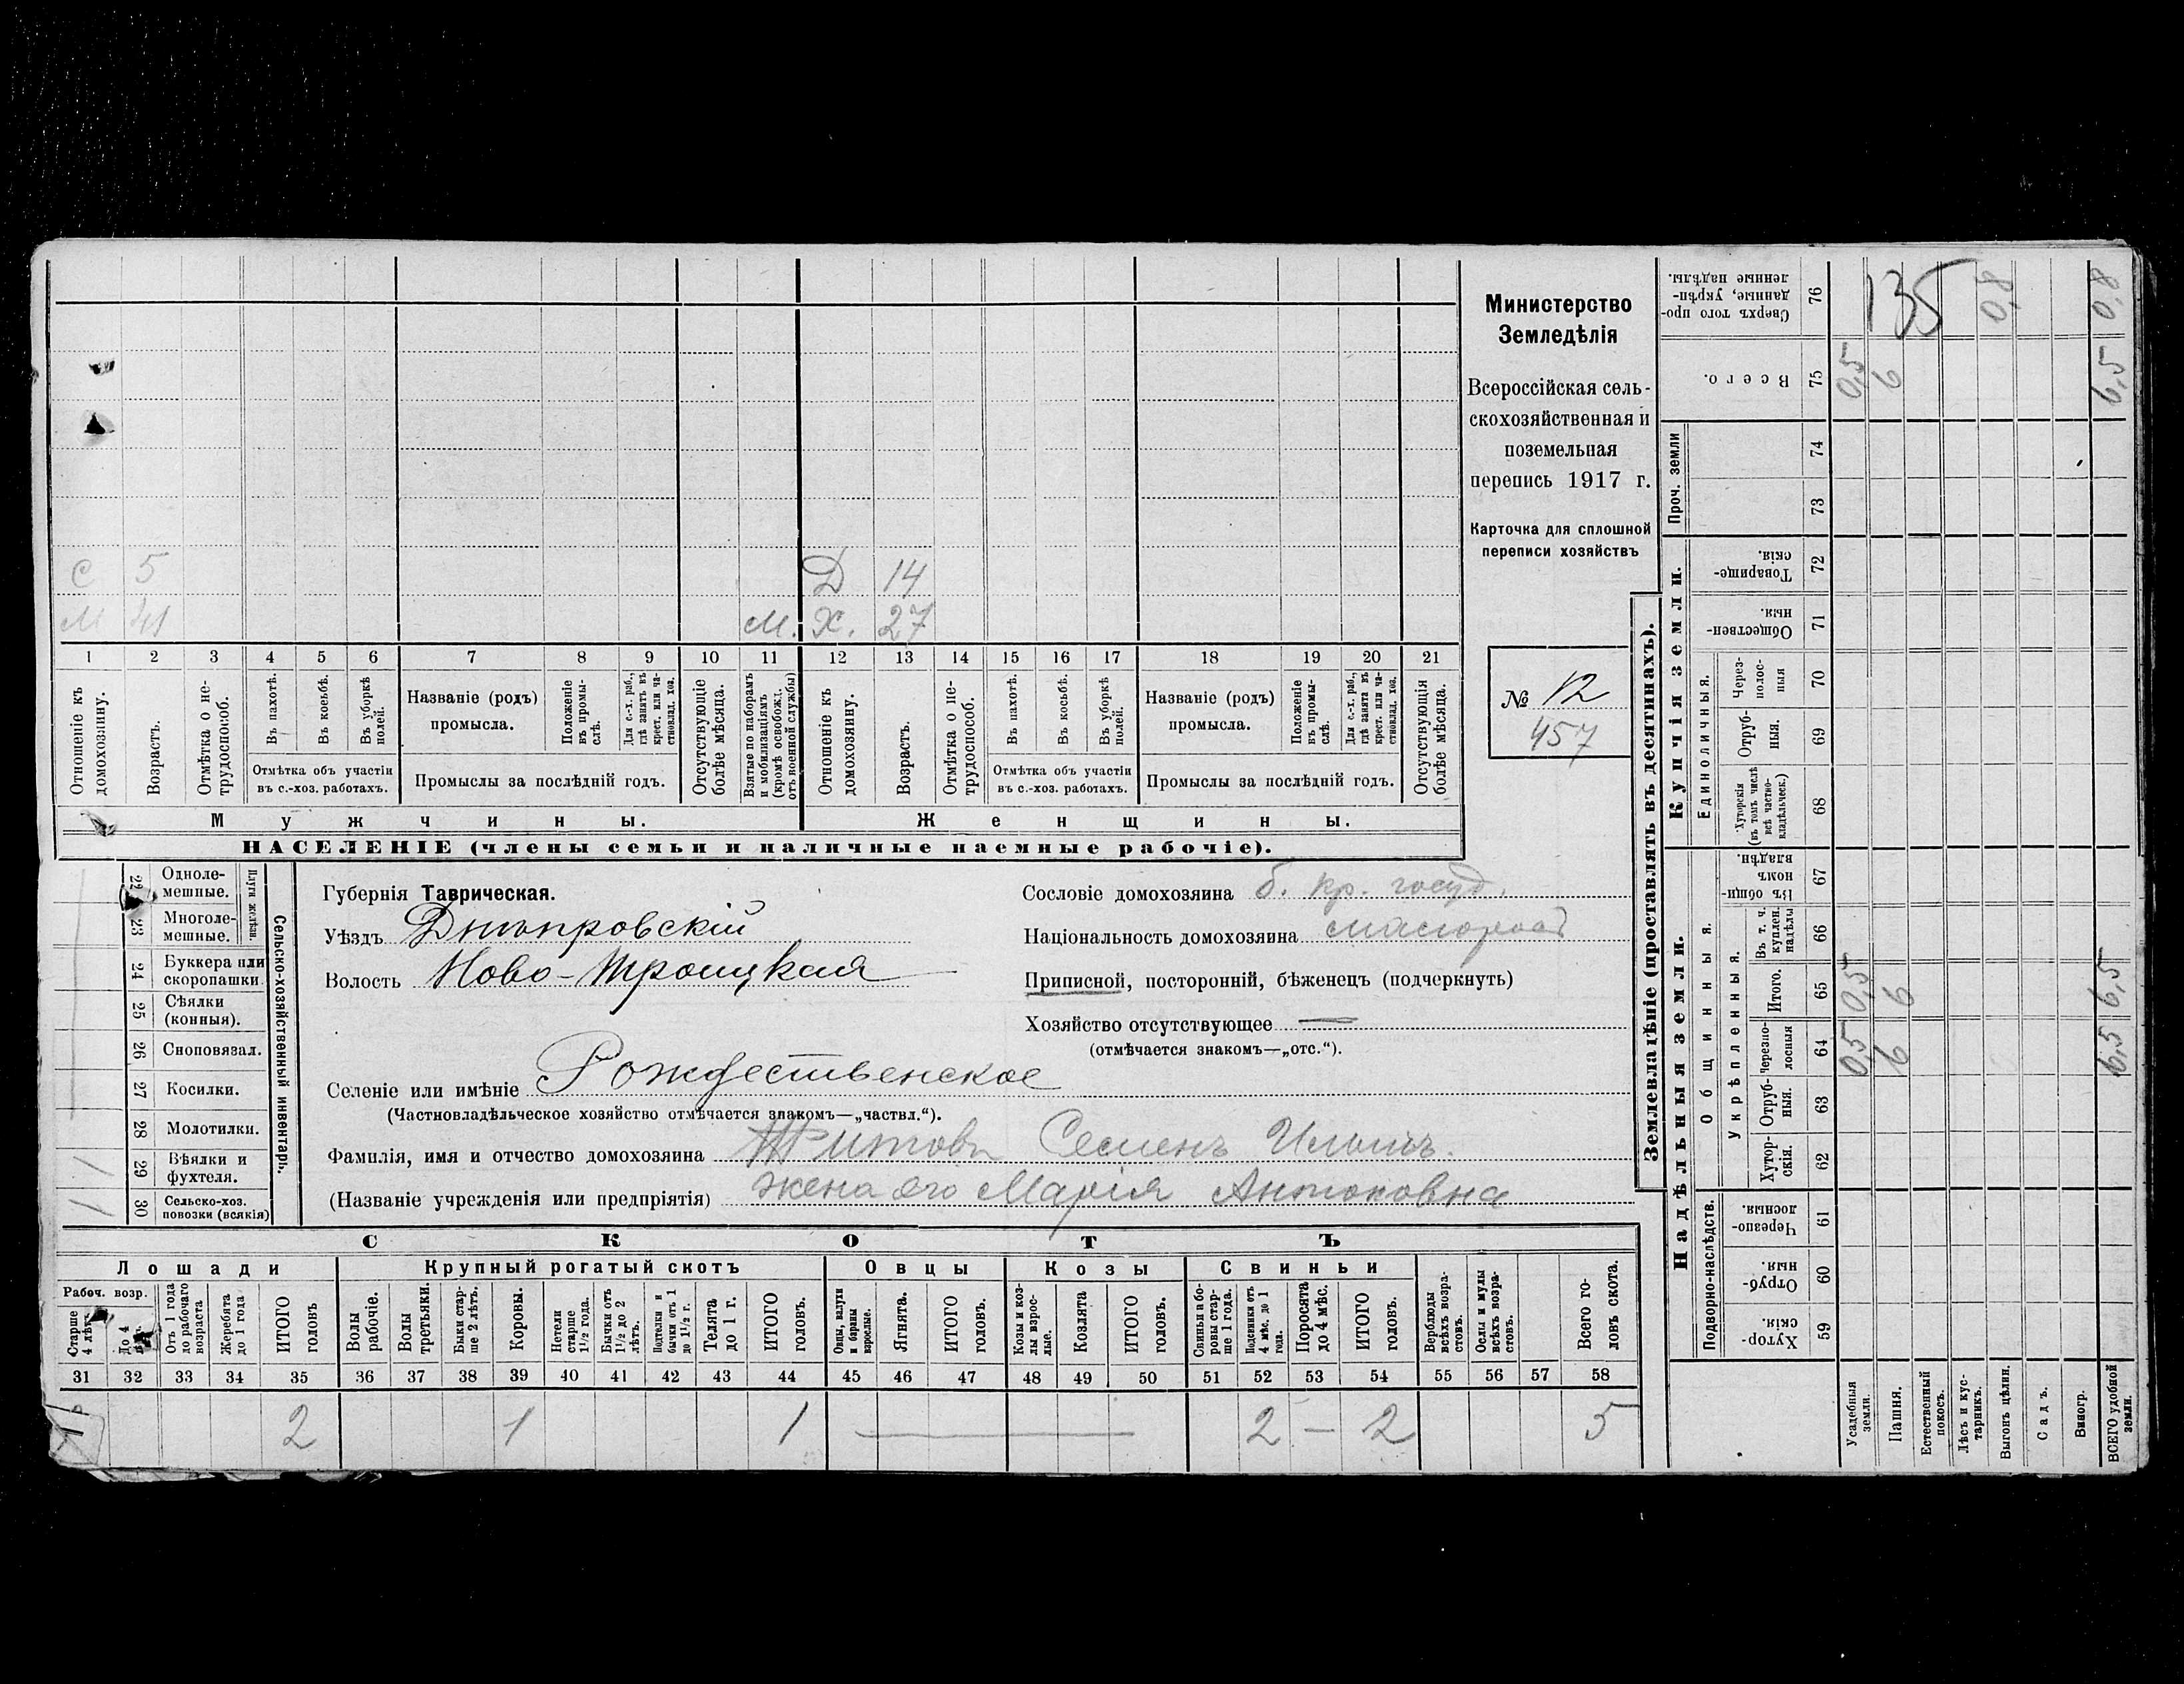 Министерство
Земледѣлія
Всероссійская сель-
скохозяйственная и
поземельная
перепись 1917 г.
Карточка для сплошной
переписи хозяйствъ
№ 12
457
С 5 Д 14
М 41 М. Х. 27
1 2 3 4 5 6 7 8 9 10 11 12 13 14 15 16 17 18 19 20 21
Отношеніе къ домохозяину.
Возрастъ.
Отмѣтка о не-трудоспособ.
Въ пахотѣ.
Въ косьбѣ.
Въ уборкѣ полей.
Отмѣтка объ участіи
въ с.-хоз. работахъ.
Названіе (родъ)
промысла.
Положеніе въ промы-слѣ.
Для с.-х. раб., гдѣ занятъ въ крест. или ча-стновлад. хоз.
Промыслы за послѣдній годъ.
Отсутствующіе болѣе мѣсяца.
Взятые по наборамъ и мобилизаціямъ (кромѣ освобожд. отъ военной службы)
Отношеніе къ домохозяину.
Возрастъ.
Отмѣтка о не-трудоспособ.
Въ пахотѣ.
Въ косьбѣ.
Въ уборкѣ полей.
Отмѣтка объ участіи
въ с.-хоз. работахъ.
Названіе (родъ)
промысла.
Положеніе въ промы-слѣ.
Для с.-х. раб., гдѣ занятъ въ крест. или ча-стновлад. хоз.
Промыслы за послѣдній годъ.
Отсутствующія болѣе мѣсяца.
Мужчины. Женщины.
НАСЕЛЕНІЕ (члены семьи и наличные наемные рабочіе).
Одноле-мешные.
23 Многоле-мешные.
Плуги желѣзн.
24 Буккера или скоропашки
25 Сѣялки (конныя).
26 Сноповязал.
27 Косилки.
28 Молотилки.
29 Вѣялки и фухтеля. 1
30 Сельско-хоз. повозки (всякія) 1
Сельско-хозяйственный инвентарь.
Губернія Таврическая.
Уѣздъ Днѣпровскій
Волость Ново-Троицкая
Селеніе или имѣніе Рождественское
(Частновладѣльческое хозяйство отмѣчается знакомъ—„частвл.“).
Фамилія, имя и отчество домохозяина Семенъ
(Названіе учрежденія или предпріятія) жена его Марія Антоновна
Сословіе домохозяина б. кр. госуд.
Національность домохозяина малоросс
Приписной, посторонній, бѣженецъ (подчеркнуть)
Хозяйство отсутствующее —
(отмѣчается знакомъ—„отс.“).
СКОТЪ
Лошади Крупный рогатый скотъ Овцы Козы Свиньи
Рабоч. возр.
Старше 4 лѣтъ
До 4
Отъ 1 года до рабочаго возраста
Жеребята до 1 года
ИТОГО головъ
Волы рабочіе.
Волы третьяки.
Быки стар-ше 2 лѣтъ.
Коровы.
Нетели старше 1½ года.
Бычки отъ 1½ до 2 лѣтъ.
Подтелки и бычки отъ 1 до 1½ г.
Телята до 1 г.
ИТОГО головъ.
Овцы, валухи и бараны взрослые.
Ягнята.
ИТОГО головъ.
Козы и коз-лы взрос-лые.
Козлята
ИТОГО головъ.
Свиньи и бо-ровы стар-ше 1 года.
Подсвинки отъ 4 мѣс. до 1 года.
Поросята до 4 мѣс.
ИТОГО головъ.
Верблюды всѣхъ возра-стовъ.
Ослы и мулы всѣхъ возра-стовъ.
Всего го-ловъ скота.
31 32 33 34 35 36 37 38 39 40 41 42 43 44 45 46 47 48 49 50 51 52 53 54 55 56 57 58
2 1 1 — 2 — 2 5
Землевладѣніе (проставлять въ десятинахъ).
Надѣльныя земли. Купчія земли. Проч. земли
Подворно-наслѣдств.
Общинныя.
Укрѣпленныя.
Единоличныя.
Хутор-скія. 59
Отруб-ныя. 60
Черезпо-лосныя. 61
Хутор-скія. 62
Отруб-ныя. 63
Черезпо-лосныя 64
Итого. 65
Въ т. ч. куплен. надѣлы 66
Въ общин-номъ владѣн. 67
Хуторскія (въ томъ числѣ всѣ частно-владѣльческ.) 68
Отруб-ныя. 69
Через-полос-ныя 70
Обществен-ныя. 71
Товарище-скія. 72
73
74
Всего. 75
Сверхъ того про-данные, укрѣп-ленные надѣлы. 76
Усадебныя земли. 0,5 0,5 0,5
Пашня. 6 6 6
135
Естественный покосъ.
Лѣсъ и кус-тарникъ.
Выгонъ цѣлин. 0,8
Садъ.
Виногр.
ВСЕГО удобной земли. 6,5 6,5 6,5 0,8